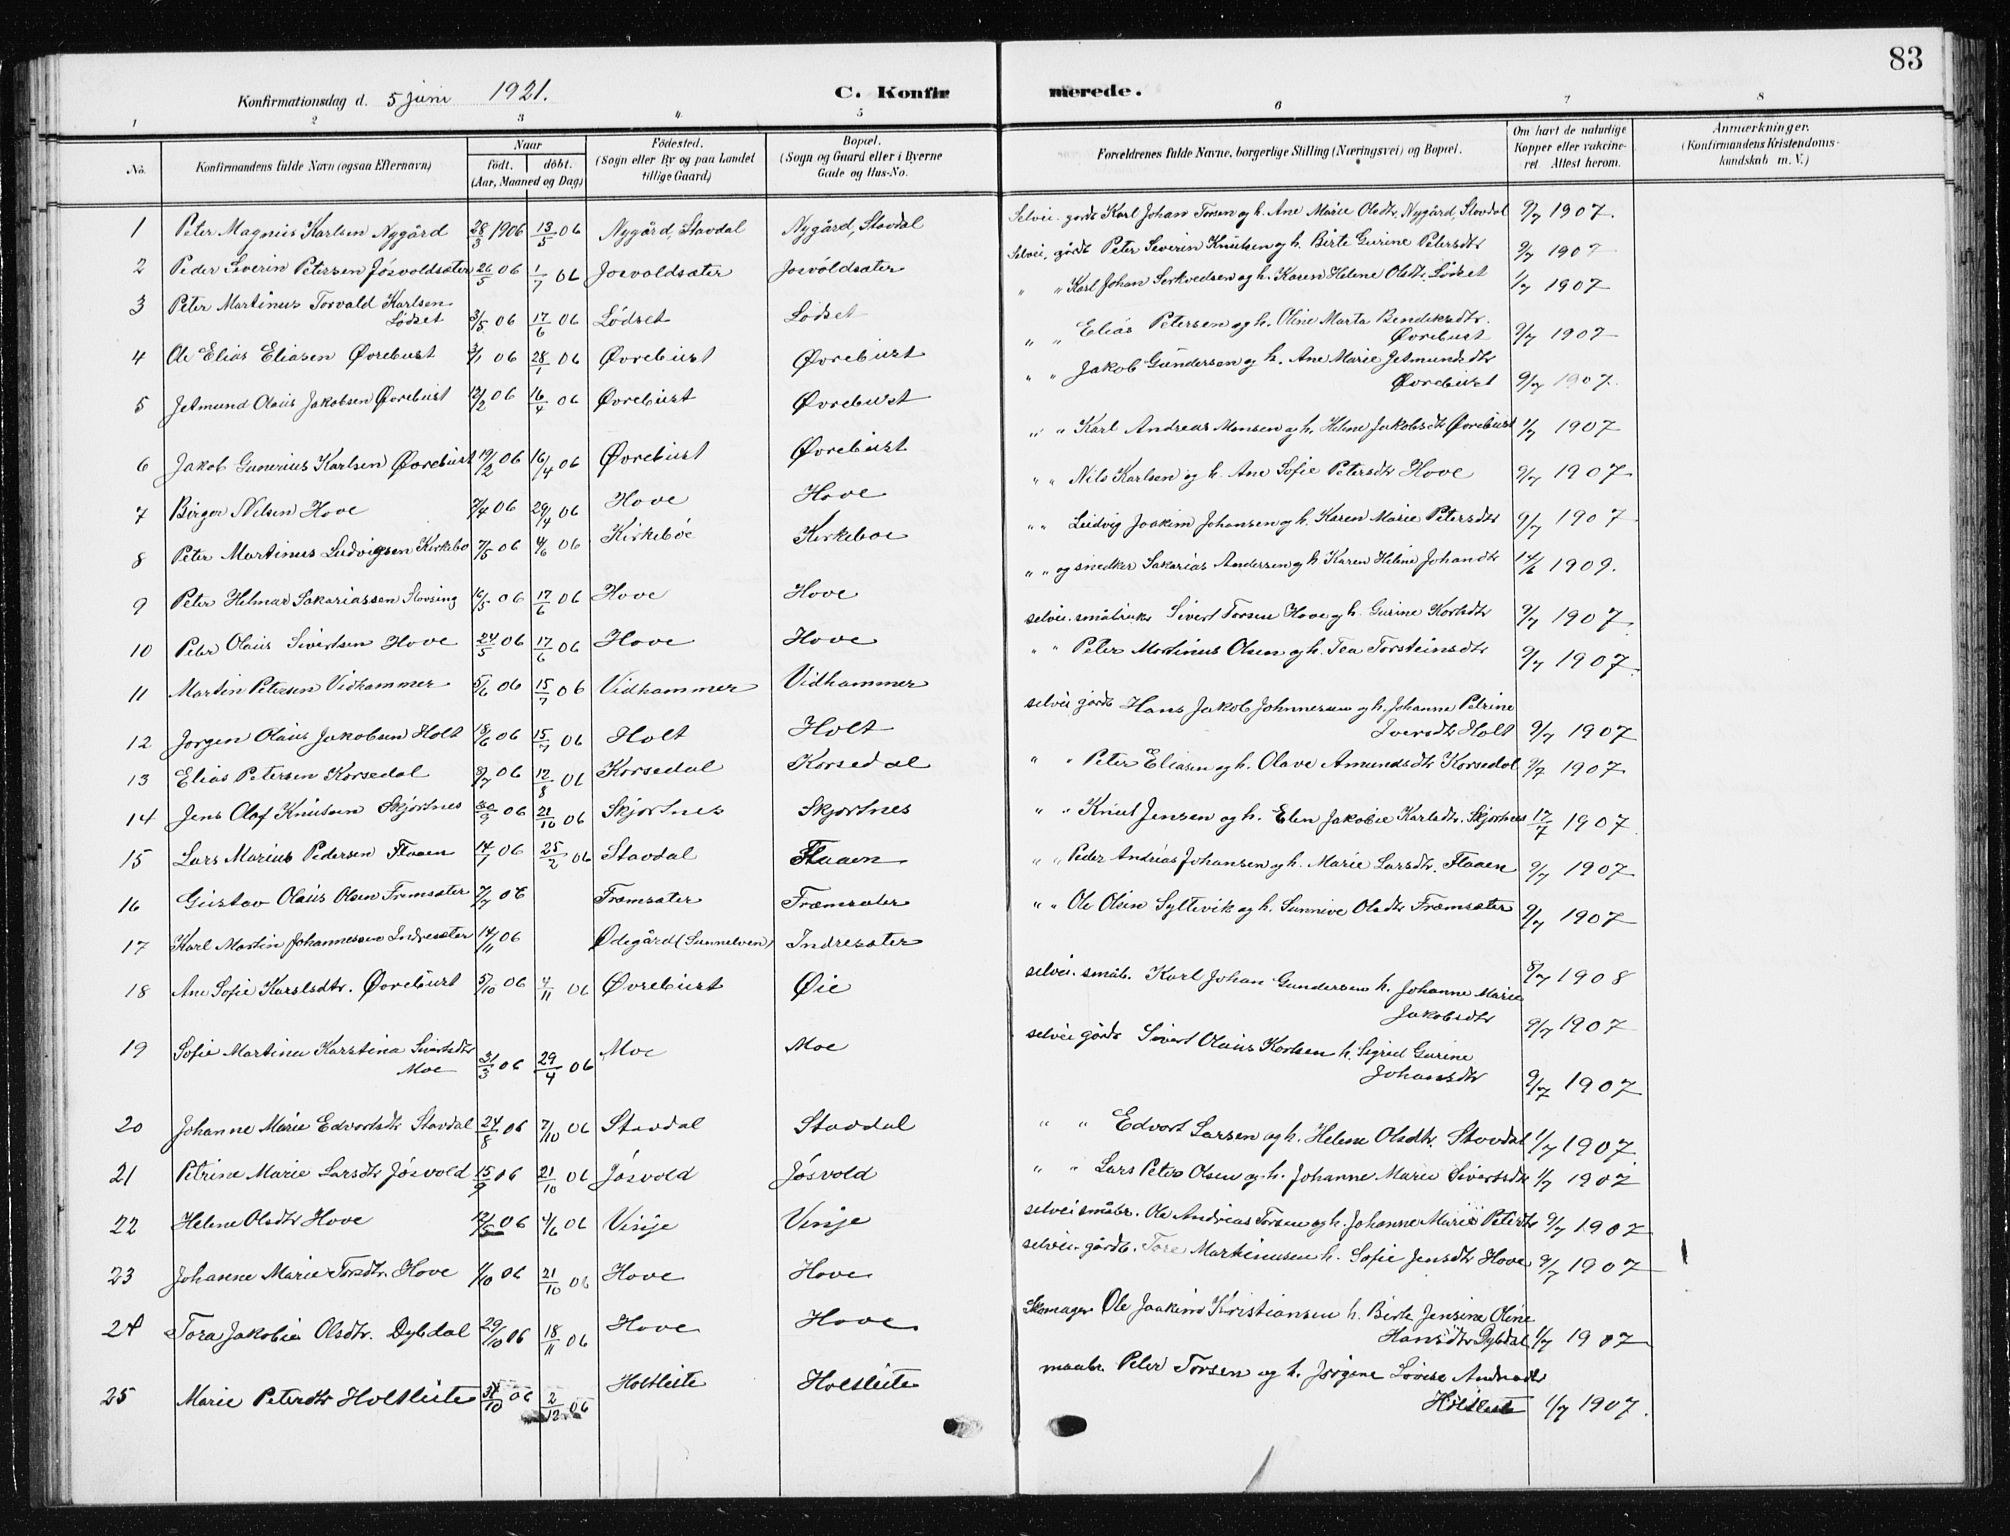 83
Konfirmationsdag d. 5 Juni 1921. C. Konfirmerede.
1 2 3 4 5 6 7 8
No. Konfirmandens fulde Navn (ogsaa Efternavn) Naar født. døbt. (Aar, Maaned og Dag) Fødested. (Sogn eller By og paa Landet tillige Gaard) Bopæl. (Sogn og Gaard eller i Byerne Gade og Hus-No. Forældrenes fulde Navne, borgerlige Stilling (Næringsvei) og Bopæl. Om havt de naturlige Kopper eller vakcineret Attest herom. Anmærkninger. (Konfirmandens Kristendomskundskab m. V.)
1 Peter Magnus Karlsen Nygård 28/3 1906 13/5 06 Nygård, Stavdal Nygård, Stavdal Selvei. gårdb Karl Johan Torsen og h. Ane Marie Olsdtr, Nygård, Stavdal 9/7 1907.
2 Peder Severin Petersen Jósvoldsæter 26/5 06 1/7 06 Josvoldsæter Josvoldsæter Selvei. gårdb Peter Severin Knutsen og h. Birte Gurine Petersdtr 9/7 1907
3 Peter Martinus Torvald Karlsen Lødset 3/5 06 17/6 06 Lødset Lødset " " Karl Johan Serkvedsen og h. Karen Helene Olsdtr. Lødset 1/7 1907
4 Ole Elias Eliasen Øvrebust 3/1 06 28/1 06 Øvrebust Øvrebust " " Elias Petersen og h. Oline Marta Bendiksdtr. Øvrebust 9/7 1907
5 Jetmund Olaus Jakobsen Øvrebust 12/2 06 16/4 06 Øvrebust Øvrebust " " Jakob Gundersen og h. Ane Marie Jetmundsdtr Øvrebust 9/7 1907.
6 Jakob Gunerius Karlsen Øvrebust 19/2 06 16/4 06 Øvrebust Øvrebust " " Karl Andreas Monsen og h. Helene Jakobsdtr Øvrebust 9/7 1907
7 Birger Nilsen Hove 7/4 06 29/4 06 Hove Hove " " Nils Karlsen og h. Ane Sofie Petersdtr Hove 9/7 1907
8 Peter Martinus Ludvigsen Kirkebø 7/5 06 4/6 06 Kirkebøe Kirkebøe " " Ludvig Joakim Johansen og h. Karen Marie Petersdtr 9/7 1907
9 Peter Helmar Sakariassen Stovsing 16/5 06 17/6 06 Hove Hove " " og snedker Sakarias Andersen og h Karen Helene Johansdtr 14/6 1909.
10 Peter Olaus Sivertsen Hove 24/5 06 17/6 06 Hove Hove selvei. småbruks Sivert Torsen Hove og h. Gurine Karlsdtr 9/7 1907
11 Martin Petersen Vidhammer 5/6 06 15/7 06 Vidhammer Vidhammer " " Peter Martinus Olsen og h. Tea Torsteinsdtr 9/7 1907.
12 Jorgen Olaus Jakobsen Holt 18/6 06 15/7 06 Holt Holt selvei gårdb Hans Jakob Johnnersen og h. Johanne Petrine Iversdtr Holt 9/7 1907
13 Elias Petersen Korsedal 9/7 06 12/8 06 Korsedal Korsedal " " Peter Eliasen og h. Olave Amundsdtr Korsedal 9/7 1907
14 Jens Olaf Knutsen Skjortnes 30/9 06 21/10 06 Skjortnes Skjortnes " " Knut Jensen og h. Elen Jakobie Karlsdtr. Skjortnes 17/7 1907
15 Lars Marius Pedersen Flaaen 14/1 06 25/2 06 Stavdal Flaaen " " Peder Andreas Johansen og h. Marie Larsdtr. Flaaen 9/7 1907
16 Gustav Olaus Olsen Fremsæter 7/7 06 Fræmsæter Fræmsæter " " Ole Olsen Syltevik og h. Sunnive Olsdtr Fræmsæter 9/7 1907
17 Karl Martin Johannessen Indresæter 14/11 06 Ødegård (Sunnelven) Indresæter 8/7 1908
18 Ane Sofie Karlsdtr. Øvrebust 5/10 06 4/11 06 Øvrebust Øie selvei. småb. Karl Johan Gundersen h. Johanne Marie Jakobsdtr 9/7 1907
19 Sofie Martine Karstina Sivertsdtr Moe 31/3 06 29/4 06 Moe Moe selvei gårdb Sivert Olaus Karlsen h. Sigrid Gurine Johansdtr 9/7 1907
20 Johanne Marie Edvartsdtr Stavdal 24/8 06 7/10 06 Stavdal Stavdal " " Edvart Larsen og h. Helene Olsdtr. Stavdal 1/7 1907
21 Petrine Marie Larsdtr Jósvold 15/9 06 21/10 06 Jósvold Jósvold " " Lars Peter Olsen og h. Johanne Marie Sivertsdtr 1/7 1907
22 Helene Olsdtr Hove 12/5 06 4/6 06 Vinje Vinje selvei småbr. Ole Andreas Torsen og h. Johanne Marie Petersdtr 9/7 1907
23 Johanne Marie Torsdtr. Hove 1/10 06 21/10 06 Hove Hove selvei. gårdb. Tore Martinusen h. Sofie Jensdtr Hove 9/7 1907
24 Tora Jakobie Olsdtr. Dybdal 29/10 06 18/11 06 Hove Hove Skomager Ole Joakim Kristiansen h. Birte Jensine Oline Hansdtr Dybdal 1/7 1907
25 Marie Petersdtr Holtleite 31/10 06 2/12 06 Holtleite Holtleite maabr. Peter Torsen og h. Jørgine Lovise Andersdtr Holtleite 1/7 1907.